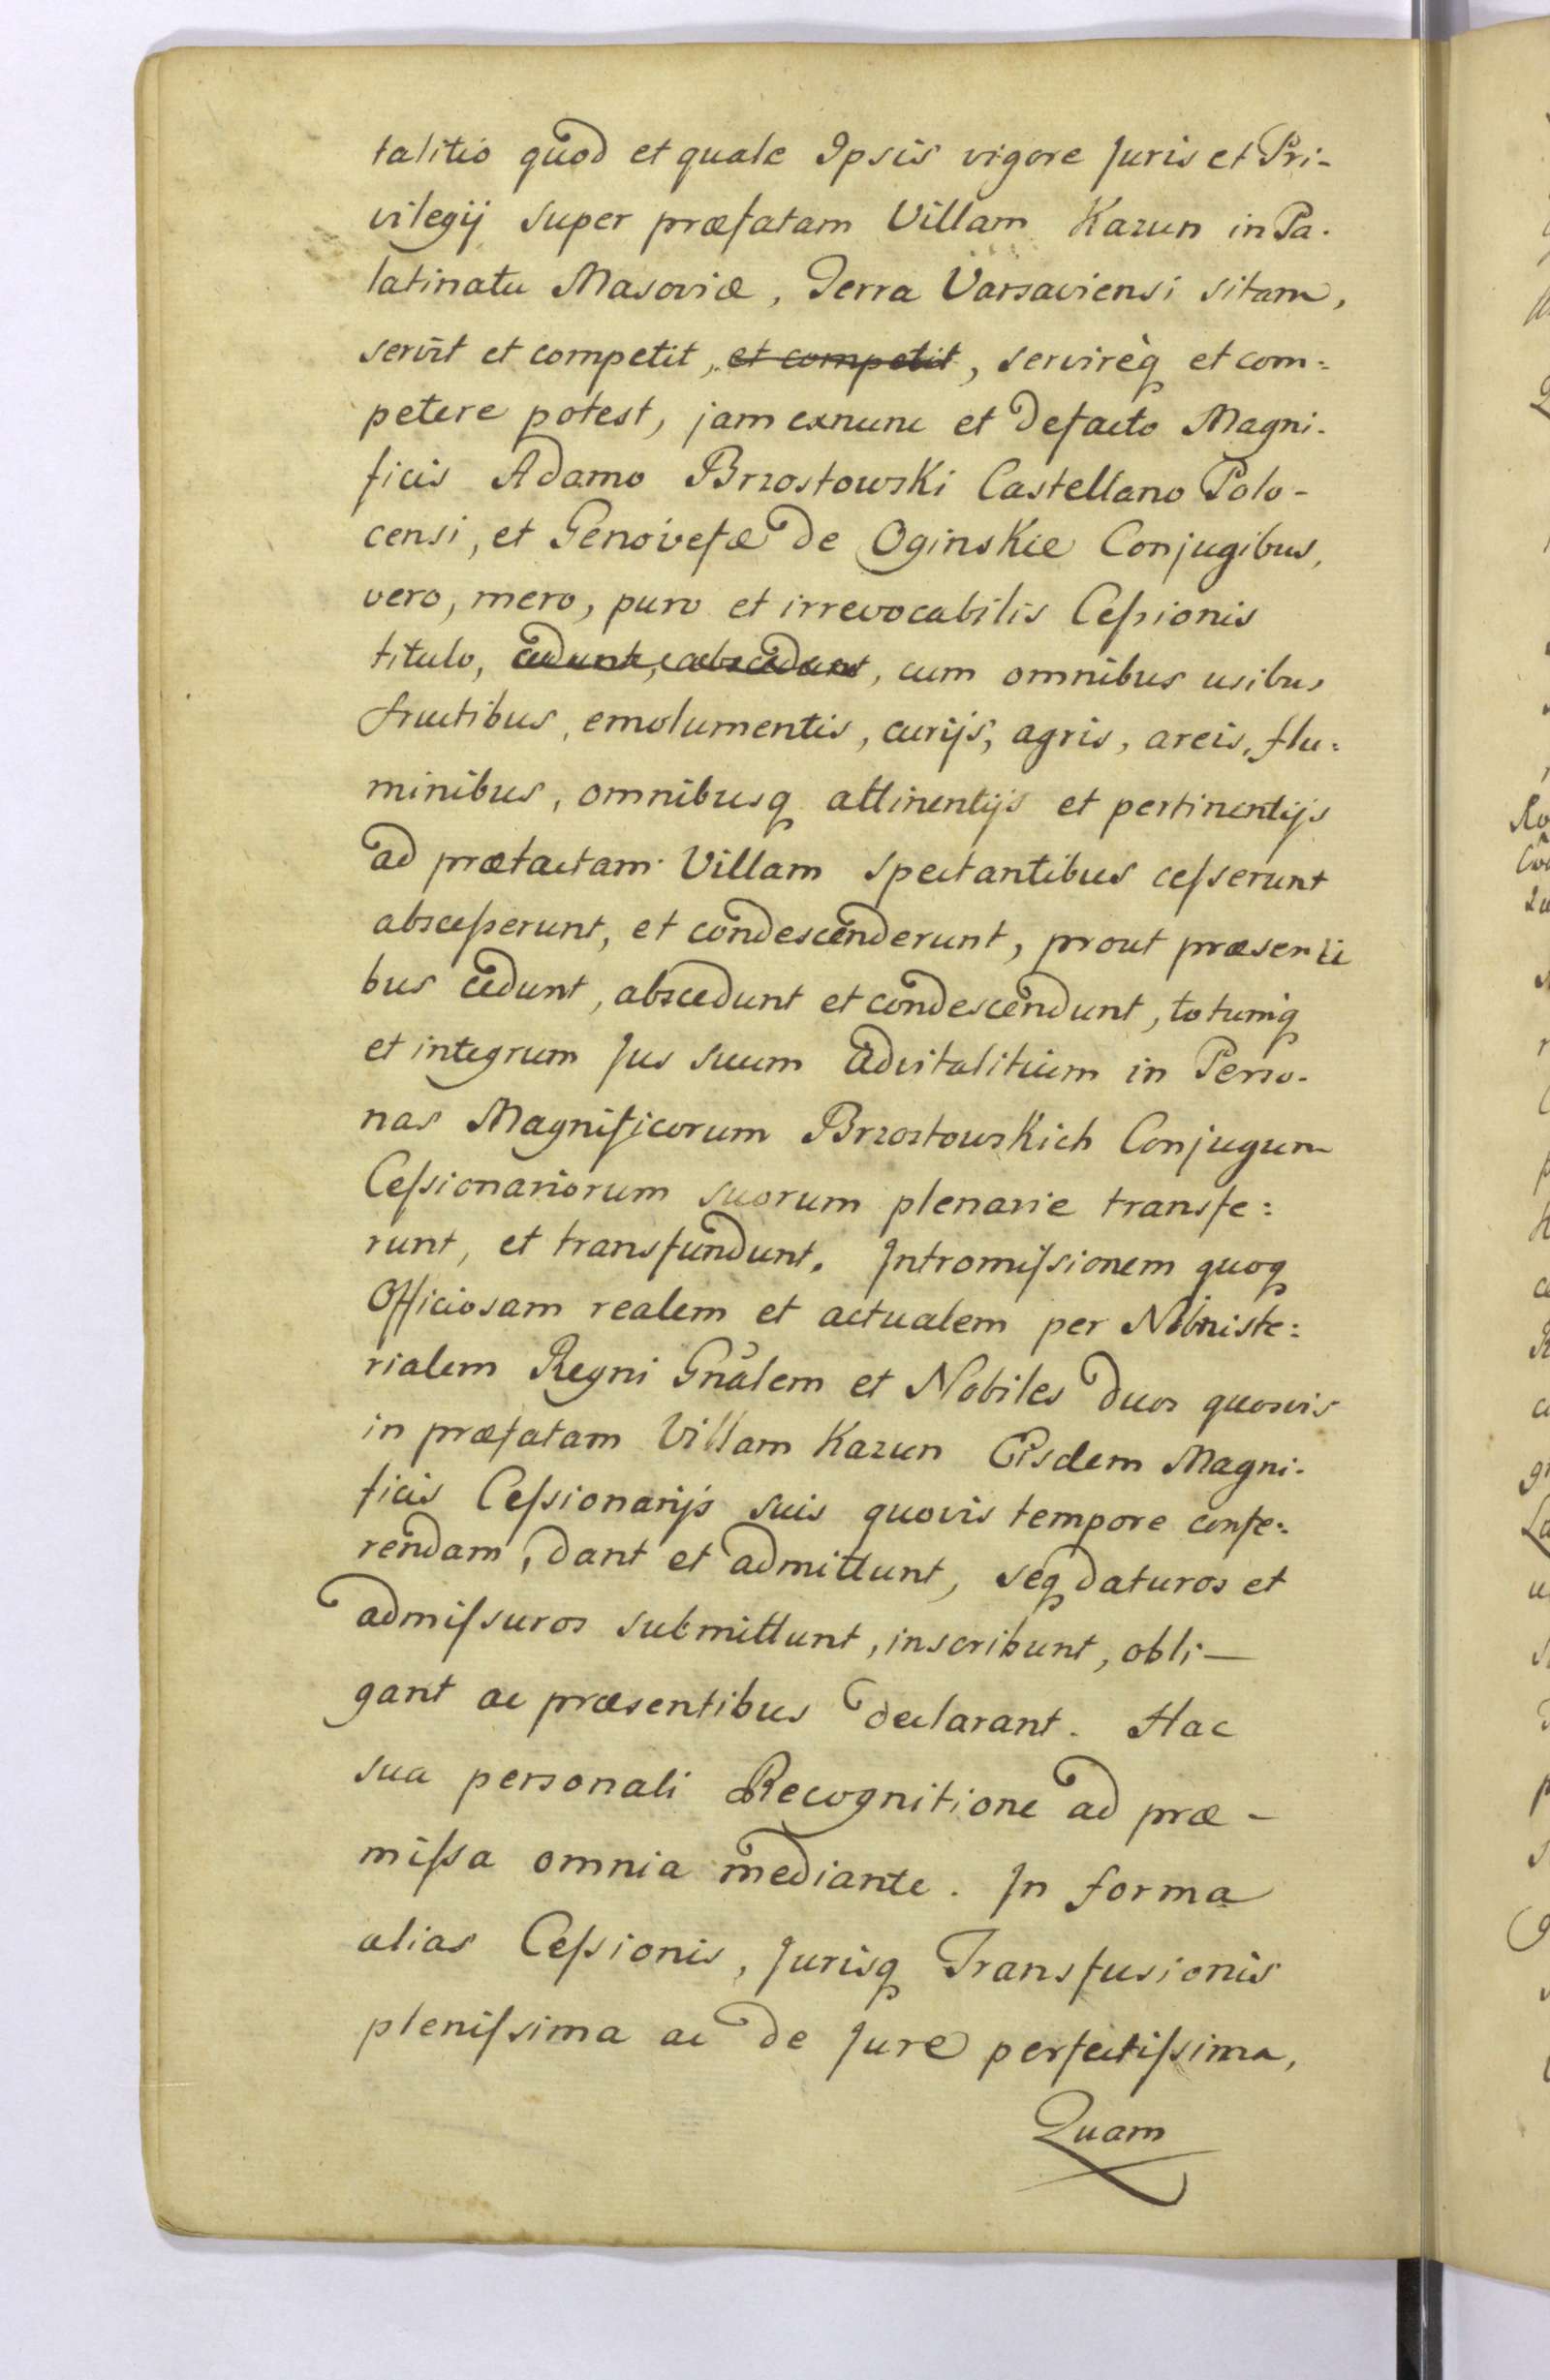 talitio quod et quale Ipsis vigore Juris et Pri-
vilegij super præfatam Villam Kazun in Pa-
latinatu Masoviæ, Terra Varsaviensi sitam,
servit et competit, et competit, servireq̨ et com=
petere potest, jam exnunc et defacto Magni-
ficis Adamo Brzostowski Castellano Polo-
censi, et Genovefæ de Oginskie Conjugibus,
vero, mero, puro et irrevocabilis Ceſsionis
titulo, cedunt, abscedunt, cum omnibus usibus
fructibus, emolumentis, curijs, agris, areis, flu=
minibus, omnibusq̨ attinentijs et pertinentijs
ad prætactam Villam spectantibus ceſserunt
absceſserunt, et condescenderunt, prout præsenti
bus cedunt, abscedunt et condescendunt, totumq̨
et integrum Jus suum advitalitium in Perso-
nas Magnificorum Brzostowskich Conjugum
Ceſsionariorum suorum plenarie transfe=
runt, et transfundunt. Intromiſsionem quoq̨
Officiosam realem et actualem per Ministe=
rialem Regni Gñalem et Nobiles duos quosvis
in præfatam Villam Kazun Eisdem Magni-
ficis Ceſsionarijs suis quovis tempore confe=
rendam, dant et admittunt, seq̨ daturos et
admiſsuros submittunt, inscribunt, obli-
gant ac præsentibus declarant. Hac
sua personali Recognitione ad præ-
miſsa omnia mediante. In forma
alias Ceſsionis, Jurisq̨ Transfusionis
pleniſsima ac de Jure perfectiſsima,
Quam